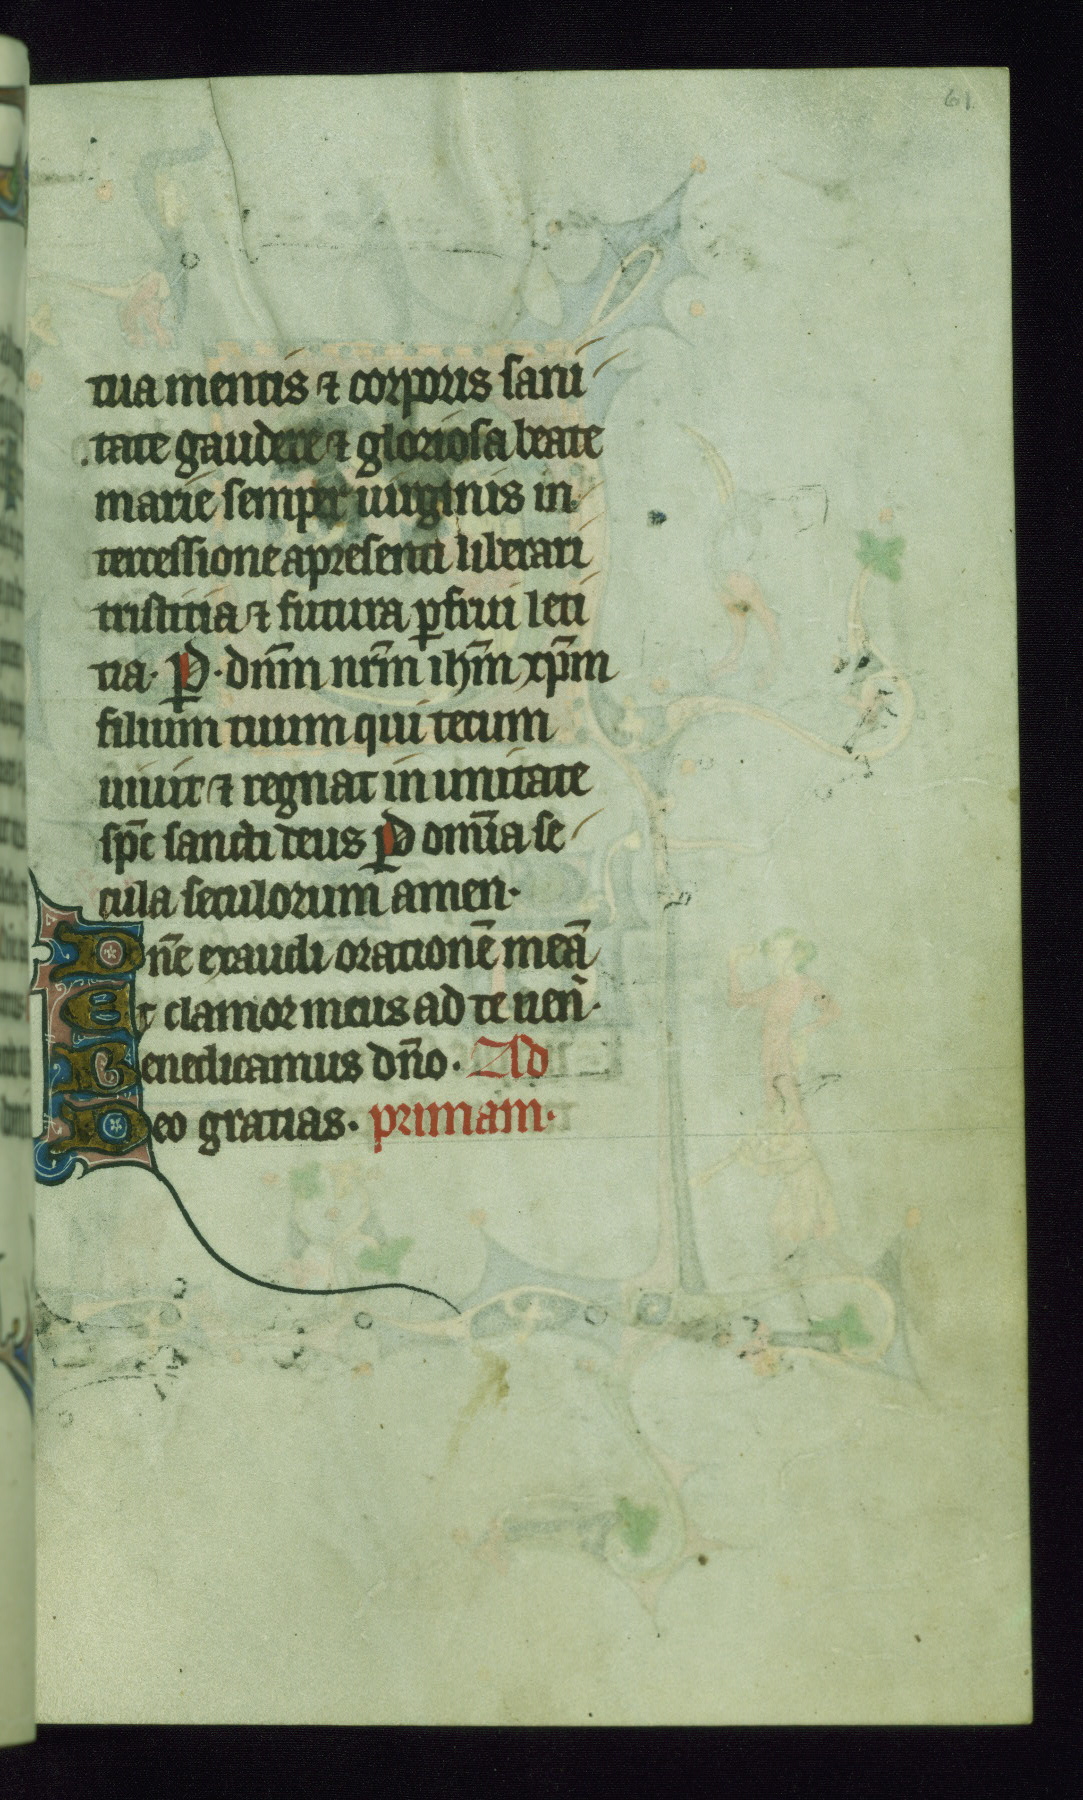 61
tua mentis ⁊ corporis sani
tate gaudere ⁊ gloriosa beate
marie semper uirginis in
tercessione a presenti liberari
tristitia ⁊ futura ꝑfrui leti
tia. P. dn̄m nr̄m ih̄m xp̄m
filium tuum qui tecum
uiuit ⁊ regnat in unitate
sp̄c sancti deus P om̄ia se
cula seculorum amen.
Dn̄e exaudi orationē meā
Et clamor meus ad te uen̄.
Benedicamus dn̄o. Ad
Deo gratias. primam.